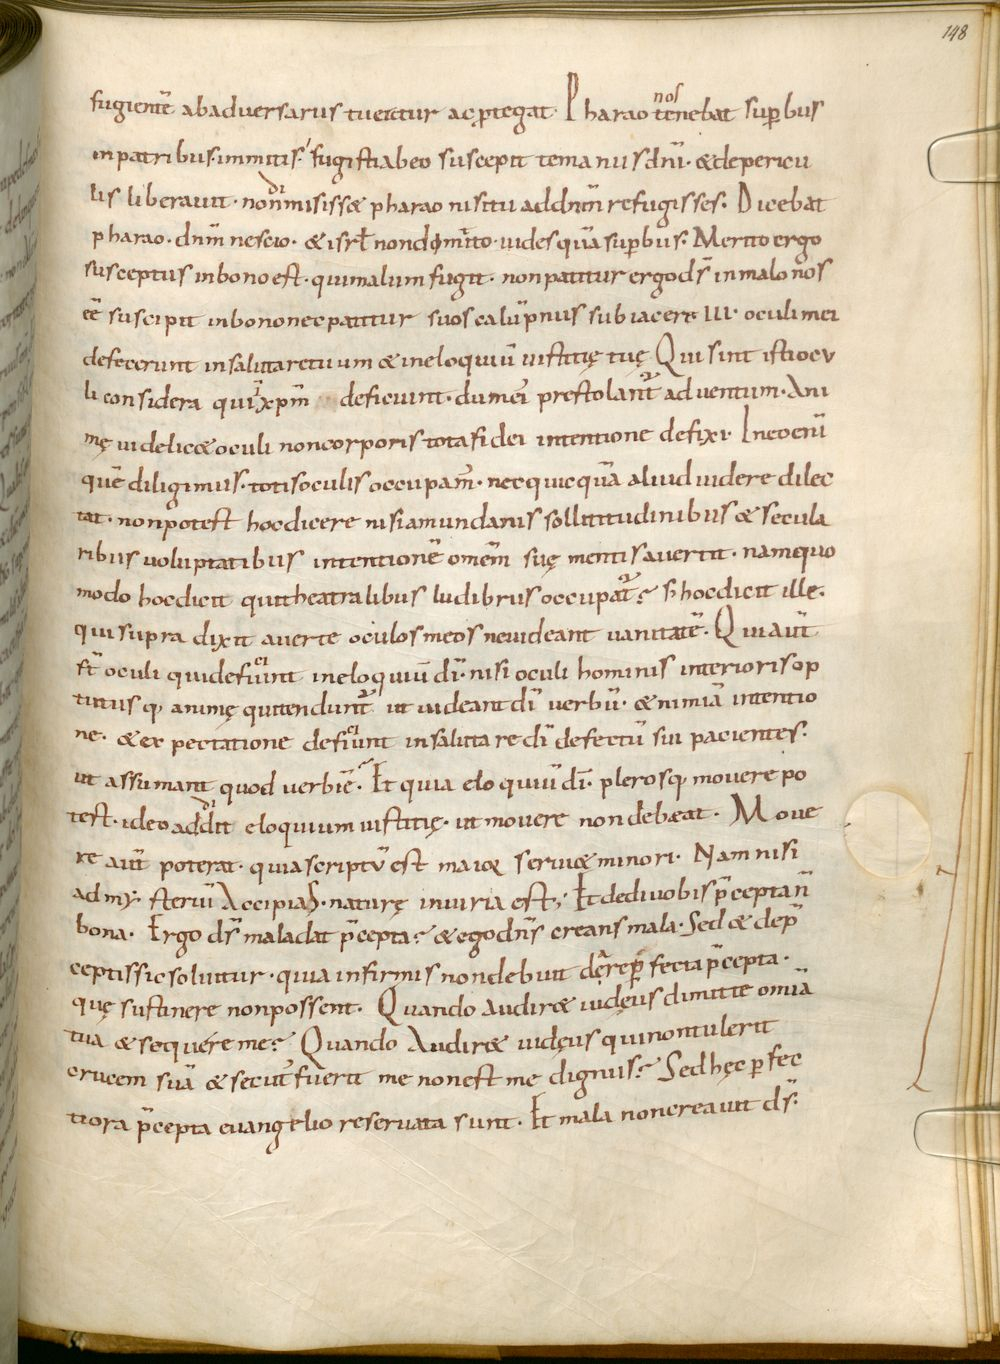 148
fugientē ab adversariis tueatur ac ꝓtegat. Pharao nos tenebat suꝑbus
in patribus. inmitis. fugisti ab eo suscepit te manus dn̄i. & de pericu
lis liberavit. non dimisiss& pharao nisi tu ad dnm̄ refugisses. Dicebat
pharao. dnm̄ nescio. & isrł non dimitto. vides quā suꝑbus. Merito ergo
susceptus in bono est. qui malum fugit. non patitur ergo ds̄ in malo nos
ēē suscipit in bono nec patitur suos calūpniis subiacere III. oculi mei
defecerunt in salutare tuum & in eloquiū iustitię tuę Qui sint isti ocu
li considera qui in xp̄m deficiunt. dum ei prestolant̄ adventum. Ani
mę videlic& oculi non corporis tota fidei intentione defixi. In eo enī
quē diligimus. totis oculis occupam̄. nec quicquā aliud videre dilec
tat. non potest hoc dicere nisi a mundanis sollititudinibus & secula
ribus voluptatibus intentionē omēm suę mentis avertit. nam quo
modo hoc dicit qui theatralibus ludibriis occupat̄? s; hoc dicit ille.
qui supra dixit averte oculos meos ne videant vanitatē. Qui aūt
st̄ oculi qui defitiunt in eloquiū dī. nisi oculi hominis interioris op
tutusq; animę qui tendunt̄ ut videant dī verbū. & nimiā intentio
ne. & expectatione deficiunt in salutare dī defectū sui pacientes.
ut assumant quod verbi ē. Et quia eloquiū dī. plerosq; movere po
test. ideo addit eloquium iustitię. ut movere non debeat. Move
re aūt poterat. quia scriptū est maior servi& minori. Nam nisi
ad mysteriū Accipias. naturę iniuria est; Et dedi vobis p̄cepta n̄
bona. Ergo ds̄ mala dat p̄cepta? & ego dn̄s creans mala. Sed & de p̄
ceptis sic solvitur. quia infirmis non debuit dare ꝑfecta p̄cepta.
quę sustinere non possent. Quando Audir& iudęus dimitte omīa
tua & sequere me? Quando Audir& iudęus qui non tulerit
crucem suā & secut̄ fuerit me non est me dignus? Sed hęc ꝑfec
tiora p̄cepta euangelio reservata sunt. Et mala non creavit ds̄.